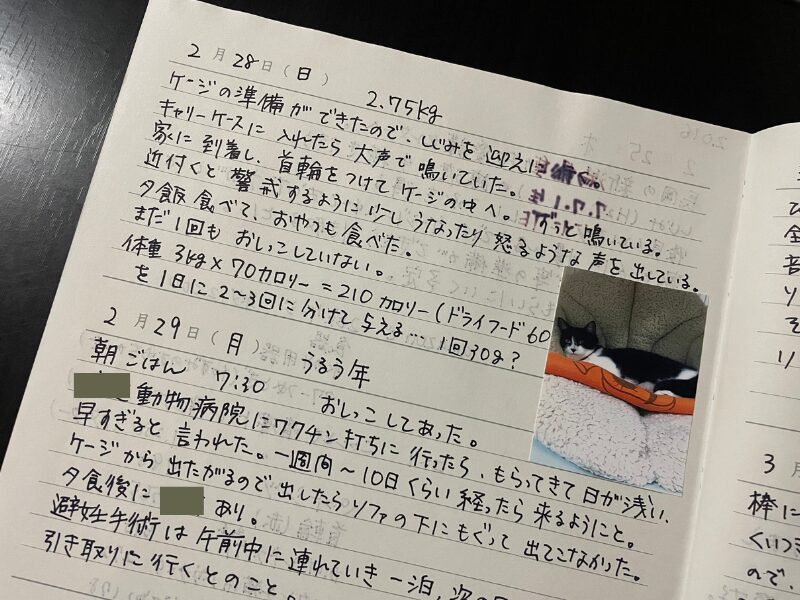 2月28日(日) 2.75kg
ケージの準備ができたので、しじみを迎えに
キャリーケースに入れたら大声で鳴いていた。
家に到着し、首輪をつけてケージの中へ。ずっと鳴いている。
近付くと警戒するように少しうなったり怒るような声を出している。
夕飯食べて、おやつも食べた。
まだ1回もおしっこしていない。
体重3kg×70カロリー=210カロリー(ドライフード60
を1日に2〜3回に分けて与える…1回30g?
2月29日(月) うるう年
朝ごはん 7:30 おしっこしてあった。
動物病院にワクチン打ちに行ったら、もらってきて日が浅い、
早すぎると言われた。一週間〜10日くらい経ったら来るようにと。
ケージから出たがるので出したらソファの下にもぐって出てこなかった。
夕食後に あり。
避妊手術は午前中に連れていき一泊、次の日
引き取りに行くとのこと。
3月
棒に
くいつき
ので、